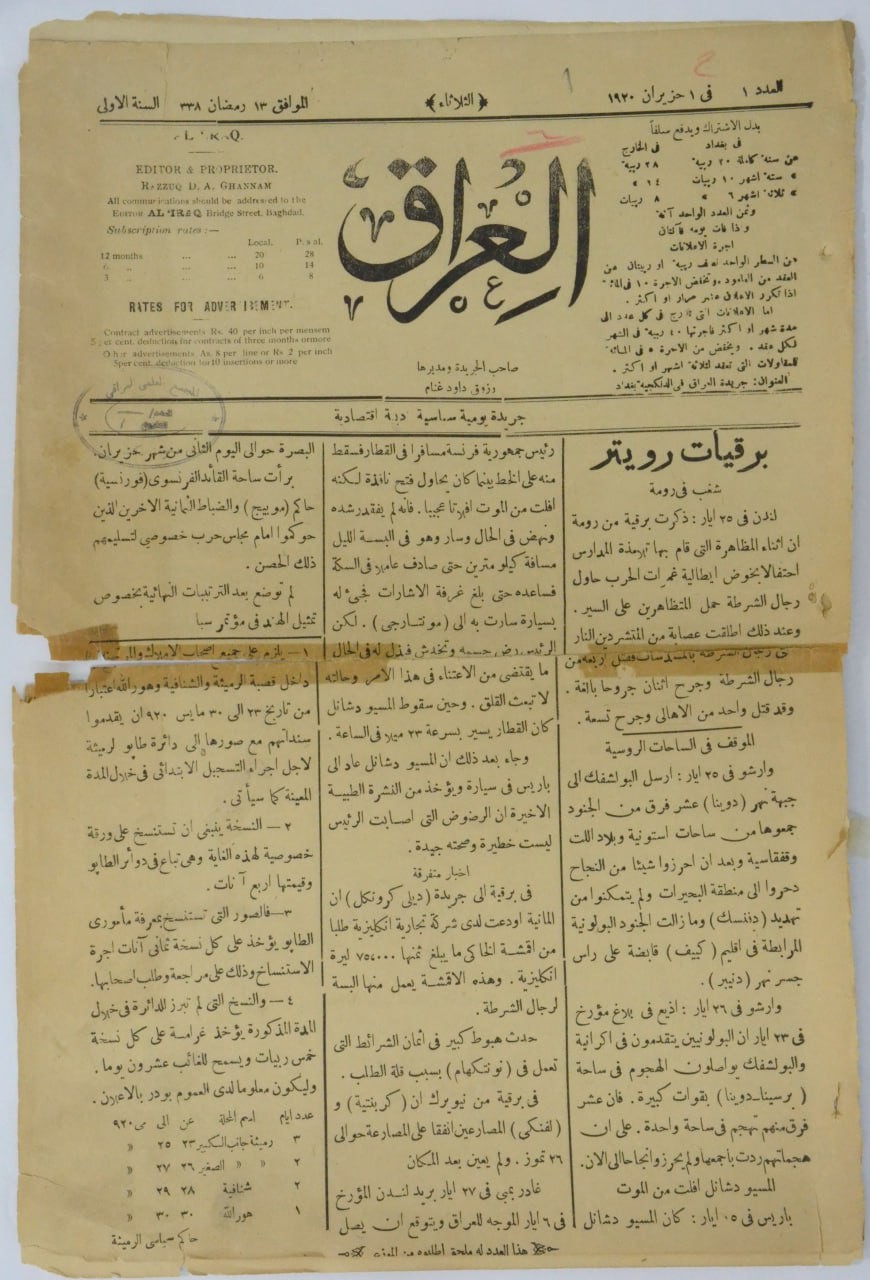 العدد ١ فى ١ حزيران ١٩٢٠
﴿ الثلاثاء ﴾
الموافق ١٣ رمضان ٣٣٨ السنة الاولى
بدل الاشتراك ويدفع سلفاً
فى بغداد فى الخارج
عن سنة كاملة ٢٠ ربية ٢٨ ربية
» ستة اشهر ١٠ ربيات ١٤ »
» ثلاثة اشهر ٦ » ٨ ربيات
وثمن العدد الواحد آنة
واذا فات يومه فآنتان
اجرة الاعلانات
عن السطر الواحد نصف ربية او ربيتان عن
العقد من العامود وتخفض الاجرة ١٠ فى المائة
اذا تكرر الاعلان عشر مرار او اكثر .
اما الاعلانات التى تدرج فى كل عدد الى
مدة شهر او اكثر فاجرتها ٤٠ ربية فى الشهر
لكل عقد . ويخفض من الاجرة ٥ فى المائة
للمقاولات التى تعقد لثلاثة اشهر او اكثر .
العنوان: جريدة العراق فى بغداد
العراق
صاحب الجريدة ومديرها
رزوق داود غنام
EDITOR & PROPRIETOR.
RAZZUQ D. A. GHANNAM
All communications should be addressed to the
EDITOR AL 'IRAQ, Bridge Street, Baghdad.
Subscription rates:—
Local.
12 months ... ... 20 28
6 „ ... ... 10 14
3 „ ... ... 6 8
RATES FOR
Contract advertisements Rs. 40 per inch per mensem
5 per cent. deduction for contracts of three months or more
Other advertisements As 8 per line or Rs 2 per inch
5 per cent. deduction for 10 insertions or more
جريدة يومية سياسية ادبية اقتصادية
برقيات رويتر
شغب فى رومة
لندن فى ٢٥ ايار : ذكرت برقية من رومة
ان اثناء المظاهرة التى قام بها تلامذة المدارس
احتفالا بخوض ايطالية غمرات الحرب حاول
رجال الشرطة حمل المتظاهرين على السير .
وعند ذلك اطلقت عصابة من المتشردين النار
على رجال الشرطة بالمسدسات فقتل اربعة من
رجال الشرطة وجرح اثنان جروحا بالغة .
وقد قتل واحد من الاهالى وجرح تسعة .
الموقف فى الساحات الروسية
وارشو فى ٢٥ ايار : ارسل البولشفك الى
جبهة نهر ( دوينا ) عشر فرق من الجنود
جمعوها من ساحات استونية وبلاد اللت
وقفقاسية وبعد ان احرزوا شيئا من النجاح
دحروا الى منطقة البحيرات ولم يتمكنوا من
تهديد ( دفنسك ) وما زالت الجنود البولونية
المرابطة فى اقليم ( كييف ) قابضة على راس
جسر نهر ( دنيبر ) .
وارشو فى ٢٦ ايار : اذيع فى بلاغ مؤرخ
فى ٢٣ ايار ان البولونيين يتقدمون فى اكرانية
والبولشفك يواصلون الهجوم فى ساحة
( برسينا ــ دوينا ) بقوات كبيرة . فان عشر
فرق منهم تهجم فى ساحة واحدة . على ان
هجماتهم ردت باجمعها ولم يحرزوا نجاحا الى الان .
المسيو دشانل افلت من الموت
باريس فى ٠٥ ايار : كان المسيو دشانل
رئيس جمهورية فرنسة مسافرا فى القطار فسقط
منه على الخط بينما كان يحاول فتح نافذة لكنه
افلت من الموت افلاتا عجيبا . فانه لم يفقد رشده
ونهض فى الحال وسار وهو فى البسة الليل
مسافة كيلو مترين حتى صادف عاملا فى السكة
فساعده حتى بلغ غرفة الاشارات فجىء له
بسيارة سارت به الى ( مونتارجى ) . لكن
الرئيس رض جسمه وتخدش فبذل له فى الحال
ما يقتضى من الاعتناء فى هذا الامر وحالته
لا تبعث القلق . وحين سقوط المسيو دشانل
كان القطار يسير بسرعة ٢٣ ميلا فى الساعة .
وجاء بعد ذلك ان المسيو دشانل عاد الى
باريس فى سيارة ويؤخذ من النشرة الطبية
الاخيرة ان الرضوض التى اصابت الرئيس
ليست خطيرة وصحته جيدة .
اخبار متفرقة
فى برقية الى جريدة ( ديلى كرونكل ) ان
المانية اودعت لدى شركة تجارية انكليزية طلبا
من اقمشة الخاكى ما يبلغ ثمنها ٧٥٠،٠٠٠ ليرة
انكليزية . وهذه الاقمشة يعمل منها البسة
لرجال الشرطة .
حدث هبوط كبير فى اثمان الشرائط التى
تعمل فى ( نوتنكهام ) بسبب قلة الطلب .
فى برقية من نيويرك ان ( كربنتية ) و
( لفنكى ) المصارعين اتفقا على المصارعة حوالى
٢٦ تموز . ولم يعين بعد المكان
غادر بمبى فى ٢٧ ايار بريد لندن المؤرخ
فى ٦ ايار الموجه للعراق ويتوقع ان يصل
البصرة حوالى اليوم الثانى من شهر حزيران .
برأت ساحة القائد الفرنسوى ( فورنسية )
حاكم ( موبيج ) والضباط الثمانية الاخرين الذين
حوكموا امام مجلس حرب خصوصى لتسليمهم
ذلك الحصن .
لم توضع بعد الترتيبات النهائية بخصوص
تمثيل الهند فى مؤتمر سبا
١ — يلزم على جميع اصحاب الاملاك
داخل قصبة الرميثة والشنافية وهور الله اعتبارا
من تاريخ ٢٣ الى ٣٠ مايس ٩٢٠ ان يقدموا
سنداتهم مع صورها الى دائرة طابو لرميثة
لاجل اجراء التسجيل الابتدائى فى خلال المدة
المعينة كما سيأتى .
٢ — النسخة ينبغى ان تستنسخ على ورقة
خصوصية لهذه الغاية وهى تباع فى دوائر الطابو
وقيمتها اربع آنات .
٣ — فالصور التى تستنسخ بمعرفة مأمورى
الطابو يؤخذ على كل نسخة ثمانى آنات اجرة
الاستنساخ وذلك على مراجعة وطلب اصحابها .
٤ — والنسخ التى لم تبرز للدائرة فى خلال
المدة المذكورة يؤخذ غرامة على كل نسخة
خمس ربيات ويسمح للغائب عشرون يوما .
وليكون معلوما لدى العموم بودر بالاعلان .
عدد ايام اسم المحلة عن الى مى ٩٢٠
٣ رميثة جانب الكبير ٢٣ ٢٥ »
٢ » » الصغير ٢٦ ٢٧ »
٢ شنافية ٢٨ ٢٩ »
١ هور الله ٣٠ ٣٠ »
حاكم سياسى الرميثة
هذا العدد له ملحق اطلبوه من